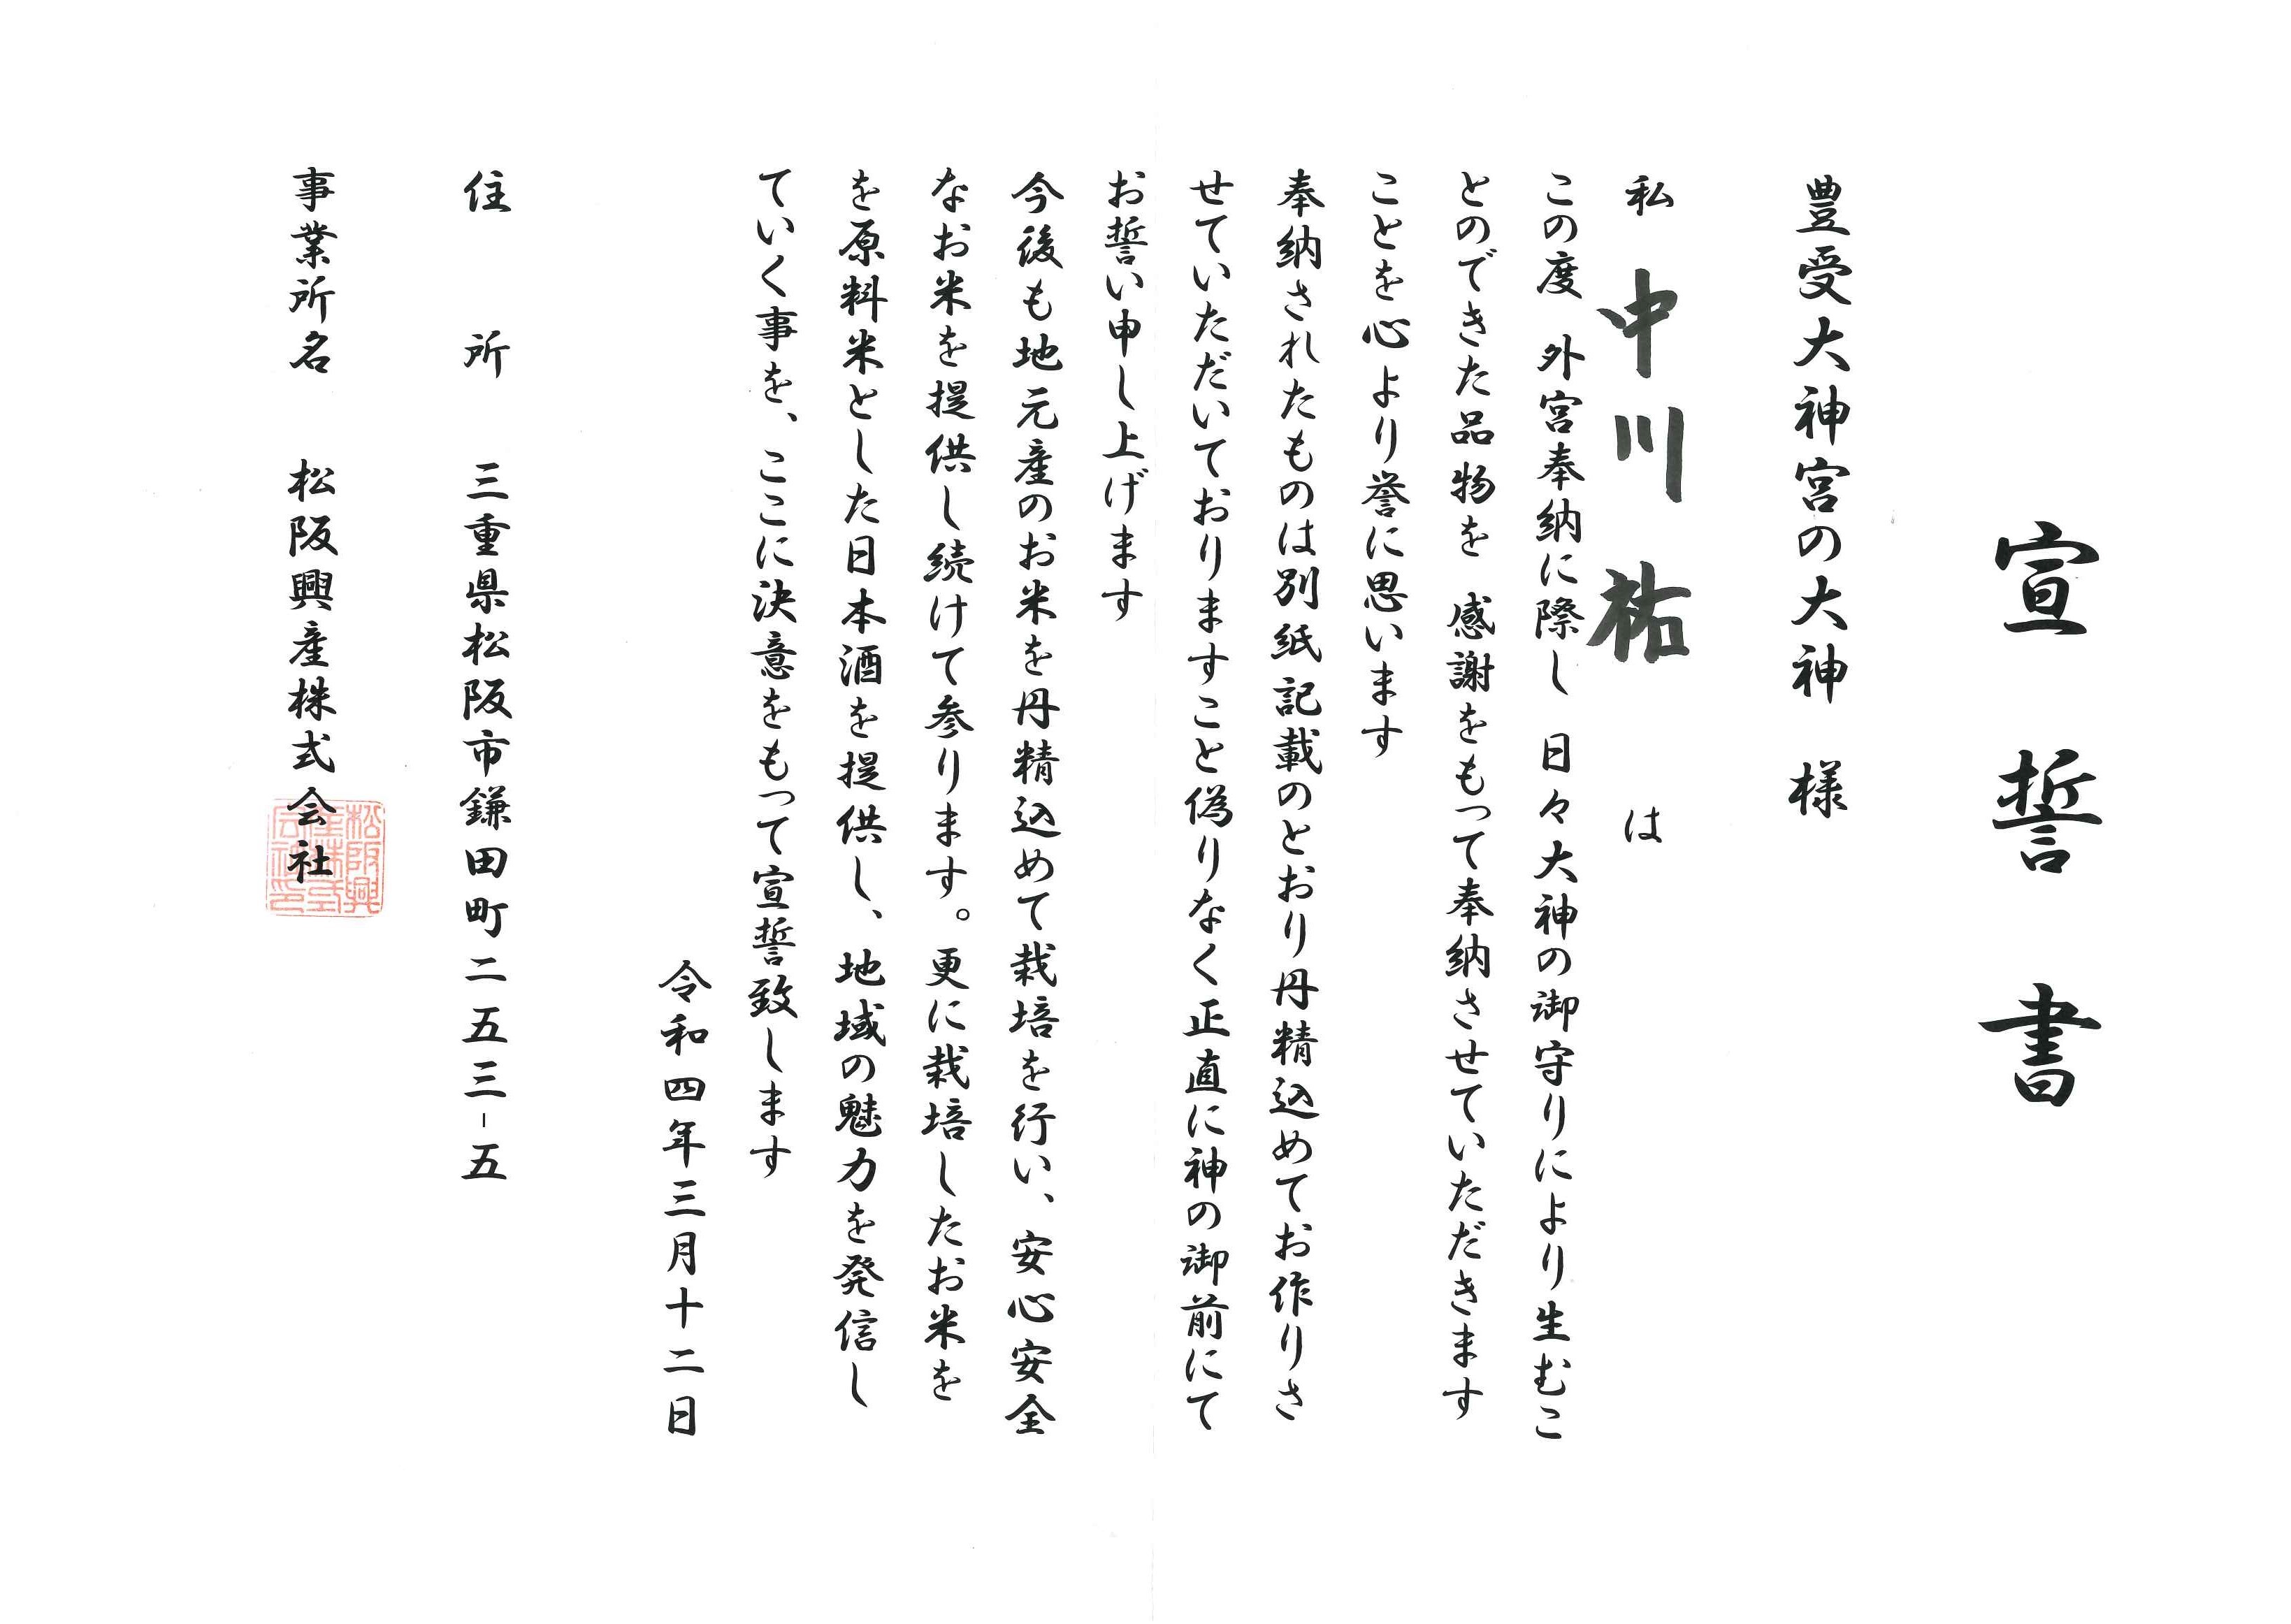 宣誓書
豊受大神宮の大神 様
私 中川祐 は
この度 外宮奉納に際し 日々大神の御守りにより生むこ
とのできた品物を 感謝をもって奉納させていただきます
ことを心より誉に思います
奉納されたものは別紙記載のとおり丹精込めてお作りさ
せていただいておりますこと偽りなく正直に神の御前にて
お誓い申し上げます
今後も地元産のお米を丹精込めて栽培を行い、安心安全
なお米を提供し続けて参ります。更に栽培したお米を
を原料米とした日本酒を提供し、地域の魅力を発信し
ていく事を、ここに決意をもって宣誓致します
令和四年三月十二日
住所 三重県松阪市鎌田町二五三-五
事業所名 松阪興産株式会社
松阪興産株式会社印